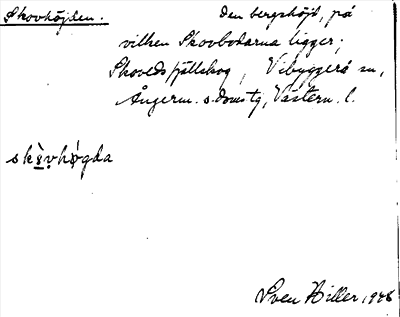 Skovhöjden. Den bergshöjd, på
vilken Skovbodarna ligger;
Skoveds fjällskog, Vibyggerå sn,
Ångerm. s. domstg, Västern. l.
skò̤vhø̀gda
Sven Hiller, 1946